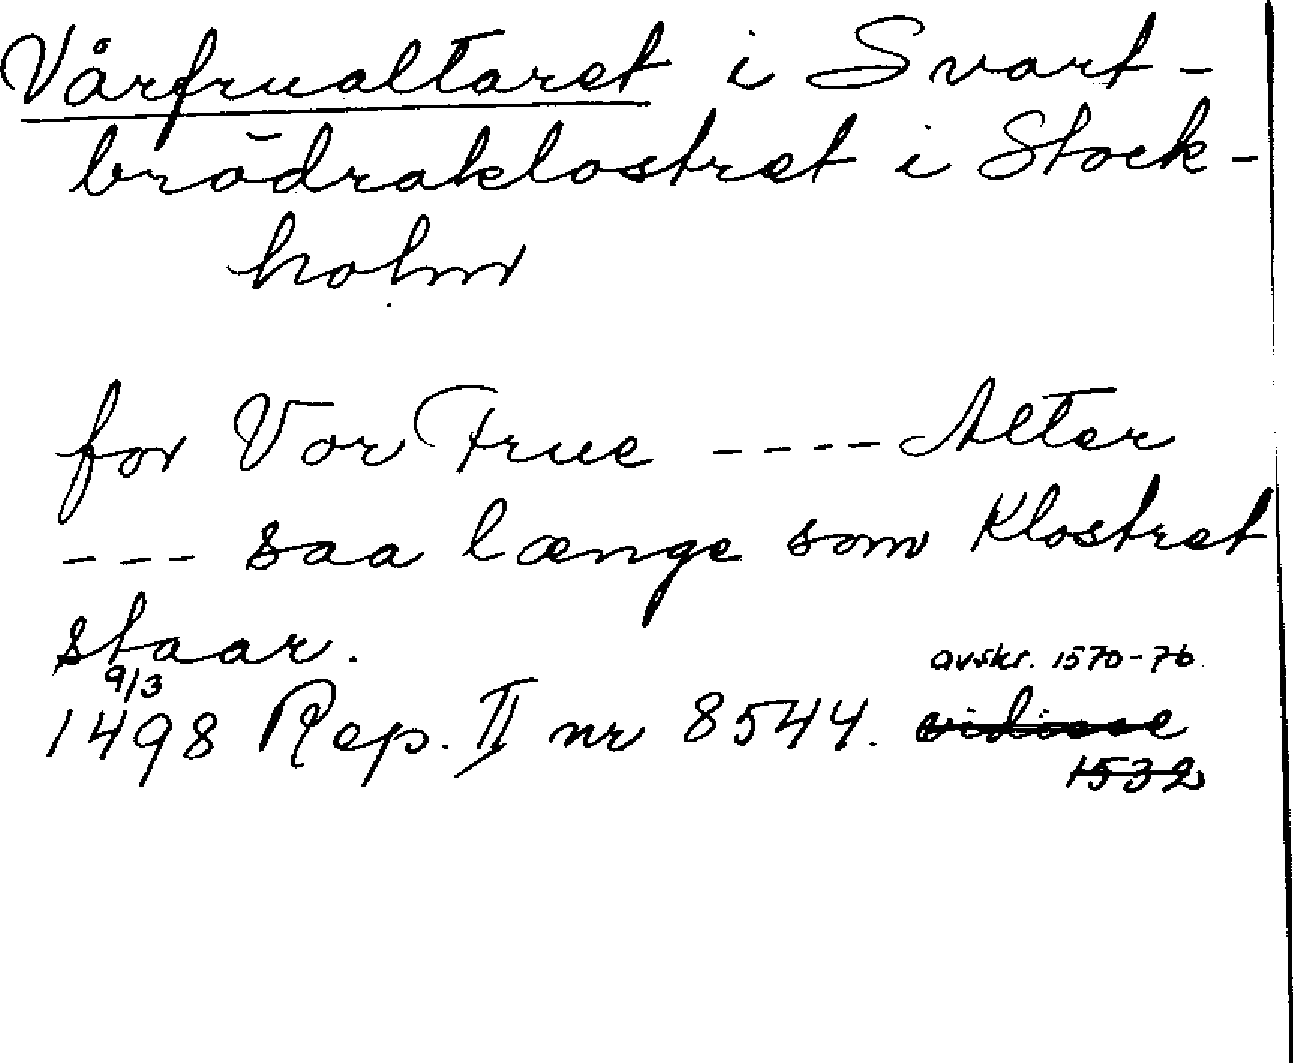 Vårfrualtaret i Svart-
brödraklostret i Stock-
holm
for Vor Frue ---- Alter
--- saa længe som Klostret
staar.
9/3 avskr. 1570-76.
1498 Rep. II nr 8544. vidisse
1532